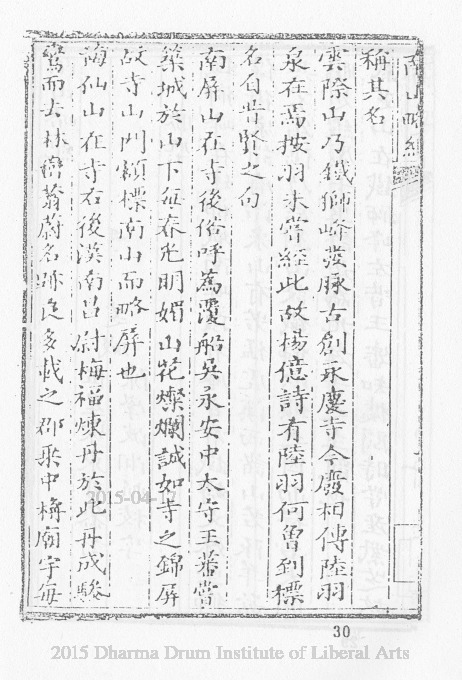 稱其名
雲際山乃鐵獅峰發脉古創永慶寺今廢相傳陸羽
泉在焉按羽未嘗經此故楊億詩有陸羽何曾到標
名自昔賢之句
南屏山在寺後俗呼為覆船吳永安中太守王蕃嘗
築城於山下每春光明媚山花燦爛誠如寺之錦屏
故寺山門額標南山而略屏也
梅仙山在寺右後漢南昌尉梅福煉丹於此丹成驂
鸞而去林巒蓊蔚名跡良多載之郡乘中梅廟宇每
30
2015-04-17
2015 Dharma Drum Institute of Liberal Arts